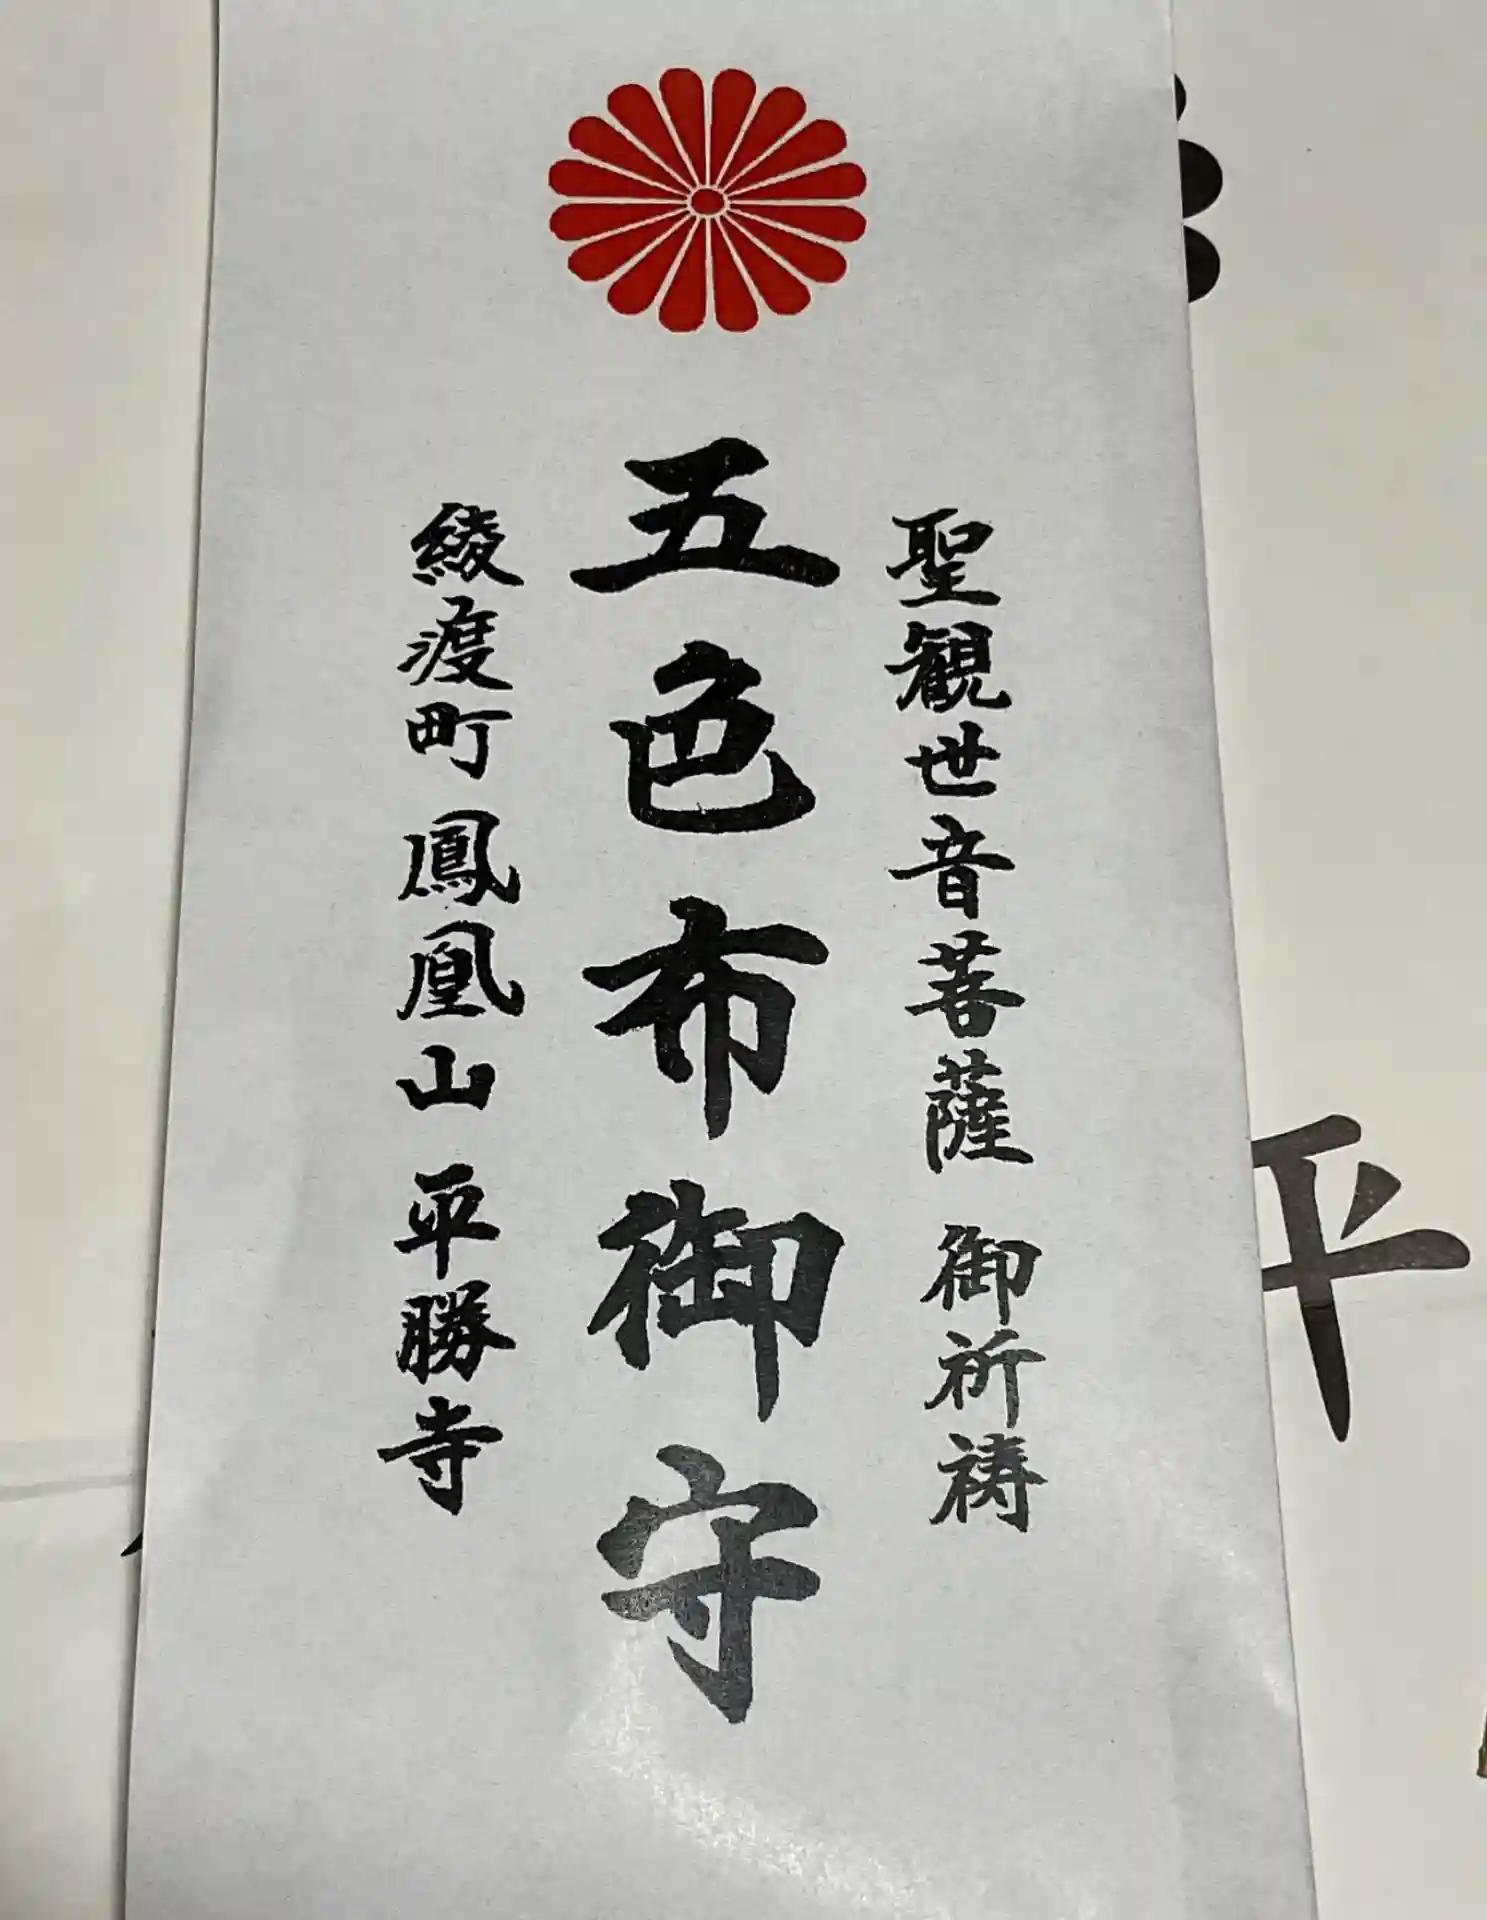 聖観世音菩薩 御祈祷
五色布御守
綾渡町鳳凰山 平勝寺
平